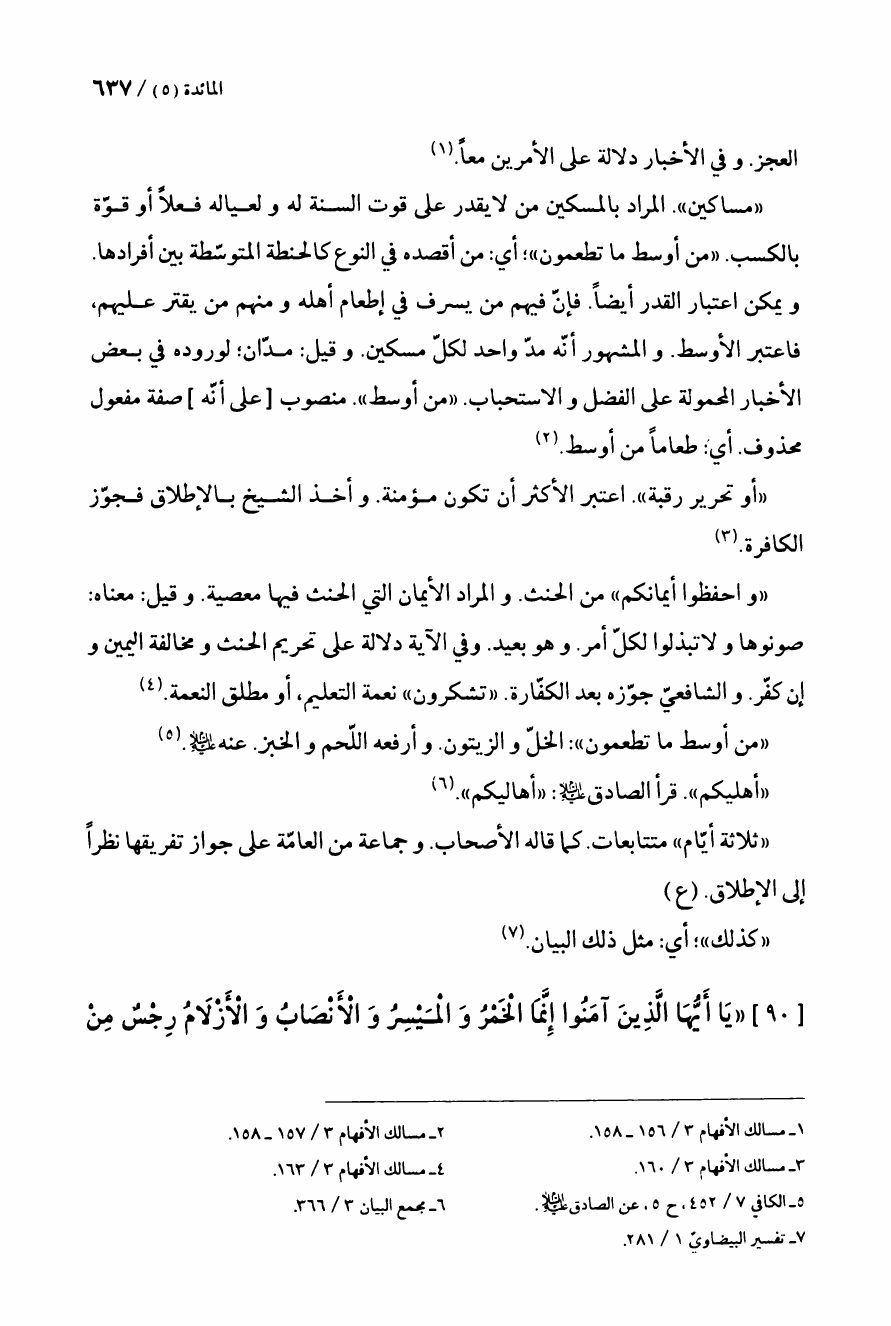 المائدة (٥) / ٦٣٧
العجز. و في الأخبار دلالة على الأمرين معاً.(١)
«مساكين». المراد بالمسكين من لايقدر على قوت السنة له و لعياله فعلاً أو قوّة
بالكسب. «من أوسط ما تطعمون»؛ أي: من أقصده في النوع كالحنطة المتوسّطة بين أفرادها.
و يمكن اعتبار القدر أيضاً. فإنّ فيهم من يسرف في إطعام أهله و منهم من يقتر عليهم،
فاعتبر الأوسط. و المشهور أنّه مدّ واحد لكلّ مسكين. و قيل: مدّان؛ لوروده في بعض
الأخبار المحمولة على الفضل و الاستحباب. «من أوسط». منصوب [على أنّه ] صفة مفعول
محذوف. أي: طعاماً من أوسط.(٢)
«أو تحرير رقبة». اعتبر الأكثر أن تكون مؤمنة. و أخذ الشيخ بالإطلاق فجوّز
الكافرة.(٣)
«و احفظوا أيمانكم» من الحنث. و المراد الأيمان التي الحنث فيها معصية. و قيل: معناه:
صونوها و لاتبذلوا لكلّ أمر. و هو بعيد. وفي الآية دلالة على تحريم الحنث و مخالفة اليمين و
إن كفّر. و الشافعيّ جوّزه بعد الكفّارة. «تشكرون» نعمة التعليم، أو مطلق النعمة.(٤)
«من أوسط ما تطعمون»: الخلّ و الزيتون. و أرفعه اللّحم و الخبز. عنه عليه السلام.(٥)
«أهليكم». قرأ الصادق عليه السلام: «أهاليكم».(٦)
«ثلاثة أيّام» متتابعات. كما قاله الأصحاب. و جماعة من العامّة على جواز تفريقها نظراً
إلى الإطلاق. (ع)
«كذلك»؛ أي: مثل ذلك البيان.(٧)
[ ٩٠ ] «يَا أَيُّهَا الَّذِينَ آمَنُوا إِنَّمَا الْخَمْرُ وَ الْمَيْسِرُ وَ الْأَنْصَابُ وَ الْأَزْلَامُ رِجْسٌ مِنْ
١ـ مسالك الأفهام ٣ / ١٥٦ ـ ١٥٨.
٢ـ مسالك الأفهام ٣ / ١٥٧ ـ ١٥٨.
٣ـ مسالك الأفهام ٣ / ١٦٠.
٤ـ مسالك الأفهام ٣ / ١٦٣.
٥ـ الكافي ٧ / ٤٥٢، ح ٥، عن الصادق عليه السلام.
٦ـ مجمع البيان ٣ / ٣٦٦.
٧ـ تفسير البيضاويّ ١ / ٢٨١.